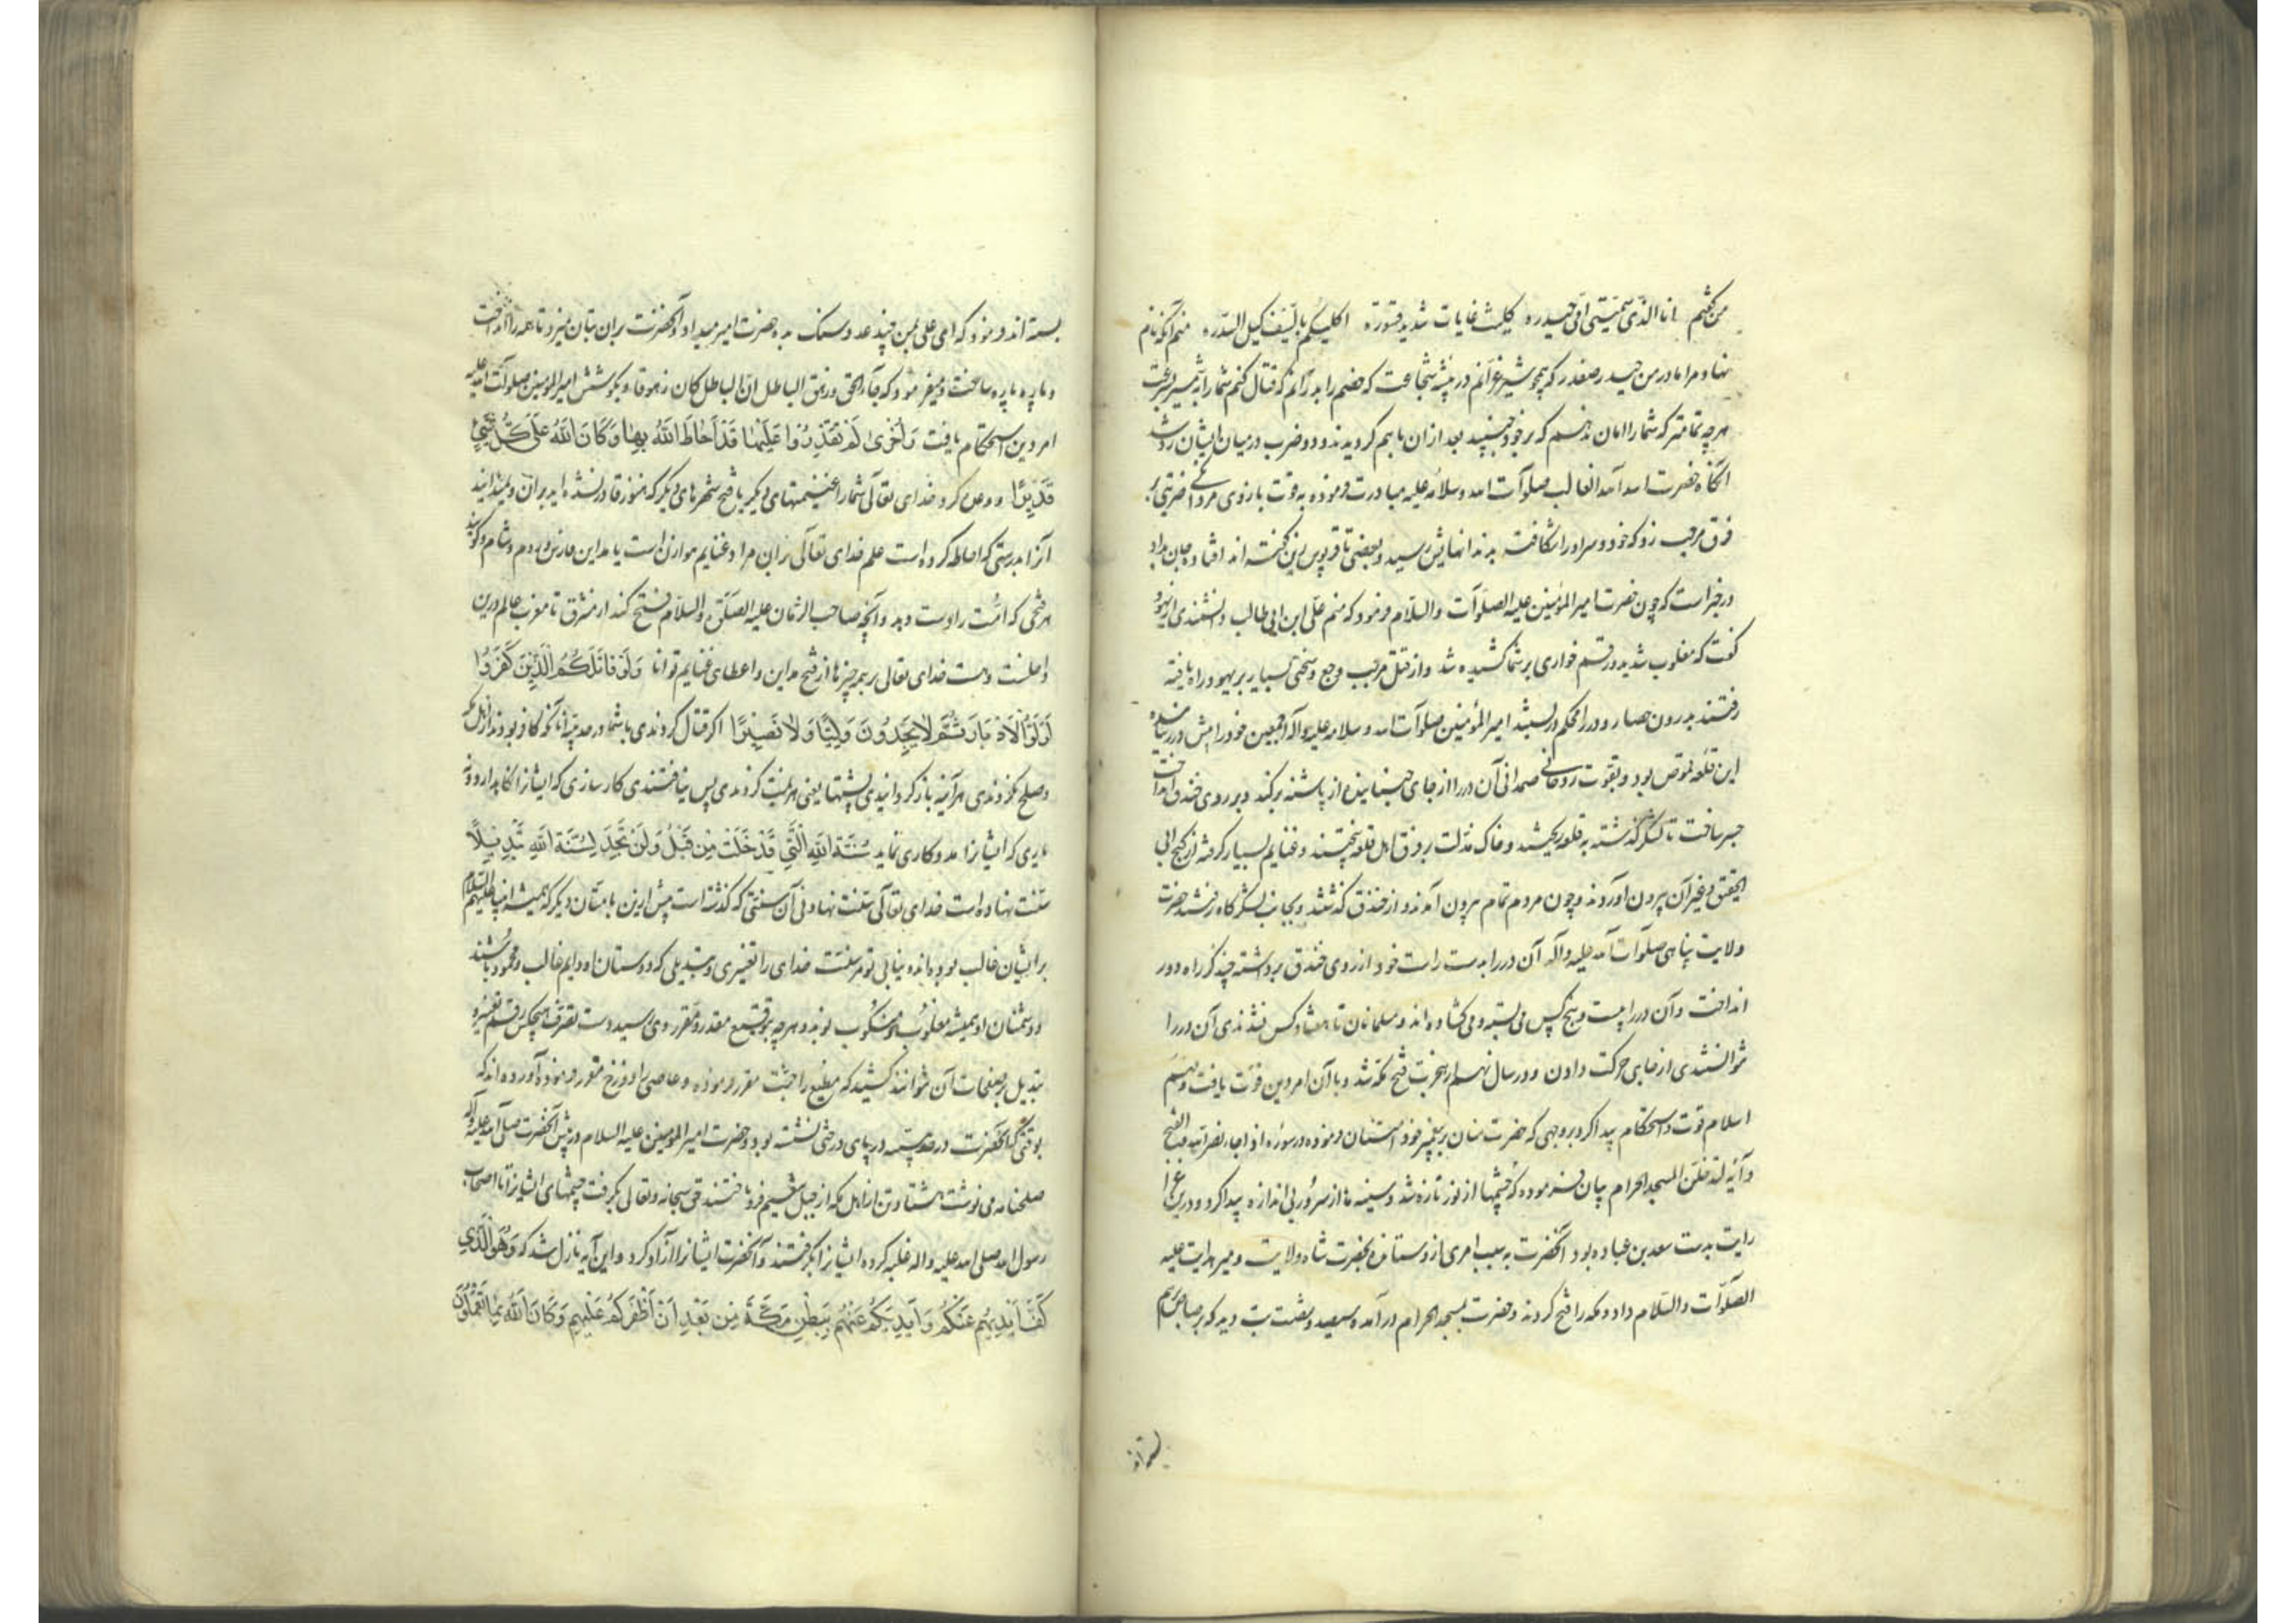 من کشم انا الذی سمتنی امی حیدره کلیث غابات شدید قسوره اکیلکم بالسیف کیل السدره منم آنکه نام
نهاد مرا مادر من حیدر صفدر که همچو شیر غرانم در بیشه شجاعت که خصم را بدرانم که قتال کنم شما را به شمشیر بسرعت
هرچه تمامتر که شما را امان ندهم که برخود جنبید بعد از ان باهم کردیدند و دو ضرب درمیان ایشان رد شد
انگاه حضرت اسد الله الغالب صلوات الله وسلامه علیه مبادرت فرموده به قوت بازوی مردانکی ضربتی بر
فرق مرحب زد که خود و سر او را شکافت به دندانهایش رسید و بعضی تا قربوس زین گفته اند افتاد و جان بداد
در خبر است که چون حضرت امیر المؤمنین علیه الصلوات والسلام فرمود که منم علی ابن ابی طالب دانشمندی از یهود
گفت که مغلوب شدید و رقم خواری بر شما کشیده شد و از قتل مرحب وجع و سختی بسیار بر یهود راه یافته
رفتند بدرون حصار و در را محکم در بستند امیر المؤمنین صلوات الله وسلامه علیه وآله اجمعین خود را پیش در رسانیده
این قلعه قموص بود و بقوت روحانی صمدانی آن در را از جای جنبانیده از پاشنه برکند و بر روی خندق انداخت
جسر ساخت تا لشکر گذشته به قلعه ریختند و خاک مذلت بر فرق اهل قلعه بیختند و غنایم بسیار گرفته از گنج ابی
الحقیق و غیر آن بیرون اوردند و چون مردم تمام بیرون آمدند و از خندق گذشتند و بجانب لشکرگاه رفتند حضرت
ولایت پناهی صلوات الله علیه وآله آن در را بدست راست خود از روی خندق برداشته چند گز راه دور
انداخت و آن در را بیست و پنج کس می بسته و می کشاده اند و مسلمانان تا هشتاد کس نشدندی آن در را
نتوانستندی از جای حرکت دادن و در سال نهم از هجرت فتح مکه شد و باآن امر دین قوت یافت و رسم
اسلام قوت و استحکام پیدا کرد بروجهی که حضرت منان بر پیغمبر خود امتنان فرموده در سوره اذا جاء نصر الله والفتح
و آیه لتدخلن المسجد الحرام بیان فرموده که چشمها از نور تازه شد و سینه ها از سرور بی اندازه پیدا کرد و درین غزا
رایت بدست سعد بن عباده بود آنحضرت به سبب امری ازو ستانده بحضرت شاه ولایت و میر هدایت علیه
الصلوات والسلام داد و مکه را فتح کردند و حضرت بمسجد الحرام درآمده سیصد و شصت بت دید که برصاص
بسته اند فرمود که ای علی بمن چند عدد سنک بده حضرت امیر میداد و آنحضرت بران بتان میزد تا همه را انداخت
و پاره پاره ساخت و میفرمود که جاء الحق وزهق الباطل ان الباطل کان زهوقا و بکوشش امیر المؤمنین صلوات الله علیه
امر دین استحکام یافت وَاُخْرىٰ لَمْ تَقْدِرُوا عَلَیْهٰا قَدْ اَحٰاطَ اللهُ بِهٰا وَکٰانَ اللهُ عَلىٰ کُلِّ شَیْءٍ
قَدِیْرًا و وعده کرد خدای تعالی شما را غنیمتهای دیکر یا فتح شهرهای دیکر که هنوز قادر نشده اید بران و نمیدانید
آنرا بدرستی که احاطه کرده است علم خدای تعالی بران مراد غنایم هوازن است یا مداین فارس و روم و شام و گویند
هر فتحی که امت را دست دهد و آنچه صاحب الزمان علیه الصلوة والسلام فتح کند از مشرق تا مغرب عالم درین
داخلست و هست خدای تعالی بر همه چیزها از فتح مداین و اعطای غنایم توانا وَلَوْ قٰاتَلَکُمُ الَّذِیْنَ کَفَرُوا
لَوَلَّوُا الْاَدْبٰارَ ثُمَّ لاٰ یَجِدُوْنَ وَلِیًّا وَلاٰ نَصِیْرًا اکر قتال کردندی باشما در حدیبیه آنانکه کافر بودند از اهل مکه
و صلح نکردندی هر آینه باز کردانیدی پشتها یعنی هزیمت کردندی پس نیافتندی کارسازی که ایشانرا نکاه دارد و نه
یاری که ایشانرا مددکاری نماید سُنَّةَ اللهِ الَّتِی قَدْ خَلَتْ مِنْ قَبْلُ وَلَنْ تَجِدَ لِسُنَّةِ اللهِ تَبْدِیْلًا
سنت نهاده است خدای تعالی سنت نهادنی آن سنتی که گذشته است پیش ازین با امتان دیکر که همیشه انبیا علیهم السلام
بر ایشان غالب بوده اند و نیابی تو مر سنت خدای را تغییری و تبدیلی که دوستان او دایم غالب و محمود باشند
و دشمنان او همیشه مغلوب و منکوب بوند و هرچه بتوقیع مقدر و مقرر وی رسید دست تصرف هیچکس رقم تغییر و
تبدیل بر صفحات آن نتوانند کشید که مطیع را جنت مقرر فرموده و عاصی را دوزخ مقرر فرموده آورده اند که
بوقتی که آنحضرت در حدیبیه در پای درختی نشسته بود و حضرت امیر المؤمنین علیه السلام در پیش آنحضرت صلی الله علیه وآله
صلحنامه می نوشت هشتاد تن از اهل مکه از جبل تنعیم فرود افتند حق سبحانه وتعالی بگرفت چشمهای ایشانرا تا اصحاب
رسول الله صلی الله علیه واله غلبه کرده ایشانرا بگرفتند و آنحضرت ایشانرا آزاد کرد و این آیه نازل شد که وَهُوَ الَّذِی
کَفَّ اَیْدِیَهُمْ عَنْکُمْ وَاَیْدِیَکُمْ عَنْهُمْ بِبَطْنِ مَکَّةَ مِنْ بَعْدِ اَنْ اَظْفَرَکُمْ عَلَیْهِمْ وَکٰانَ اللهُ بِمٰا تَعْمَلُوْنَ